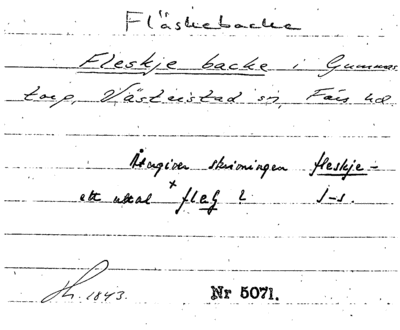 Fläskebacke
Fleskje backe i Gummas
torp, Västerstad sn, Färs hd
Återgiver skrivningen fleskje-
ett uttal
J-s.
1843.
Nr 5071.